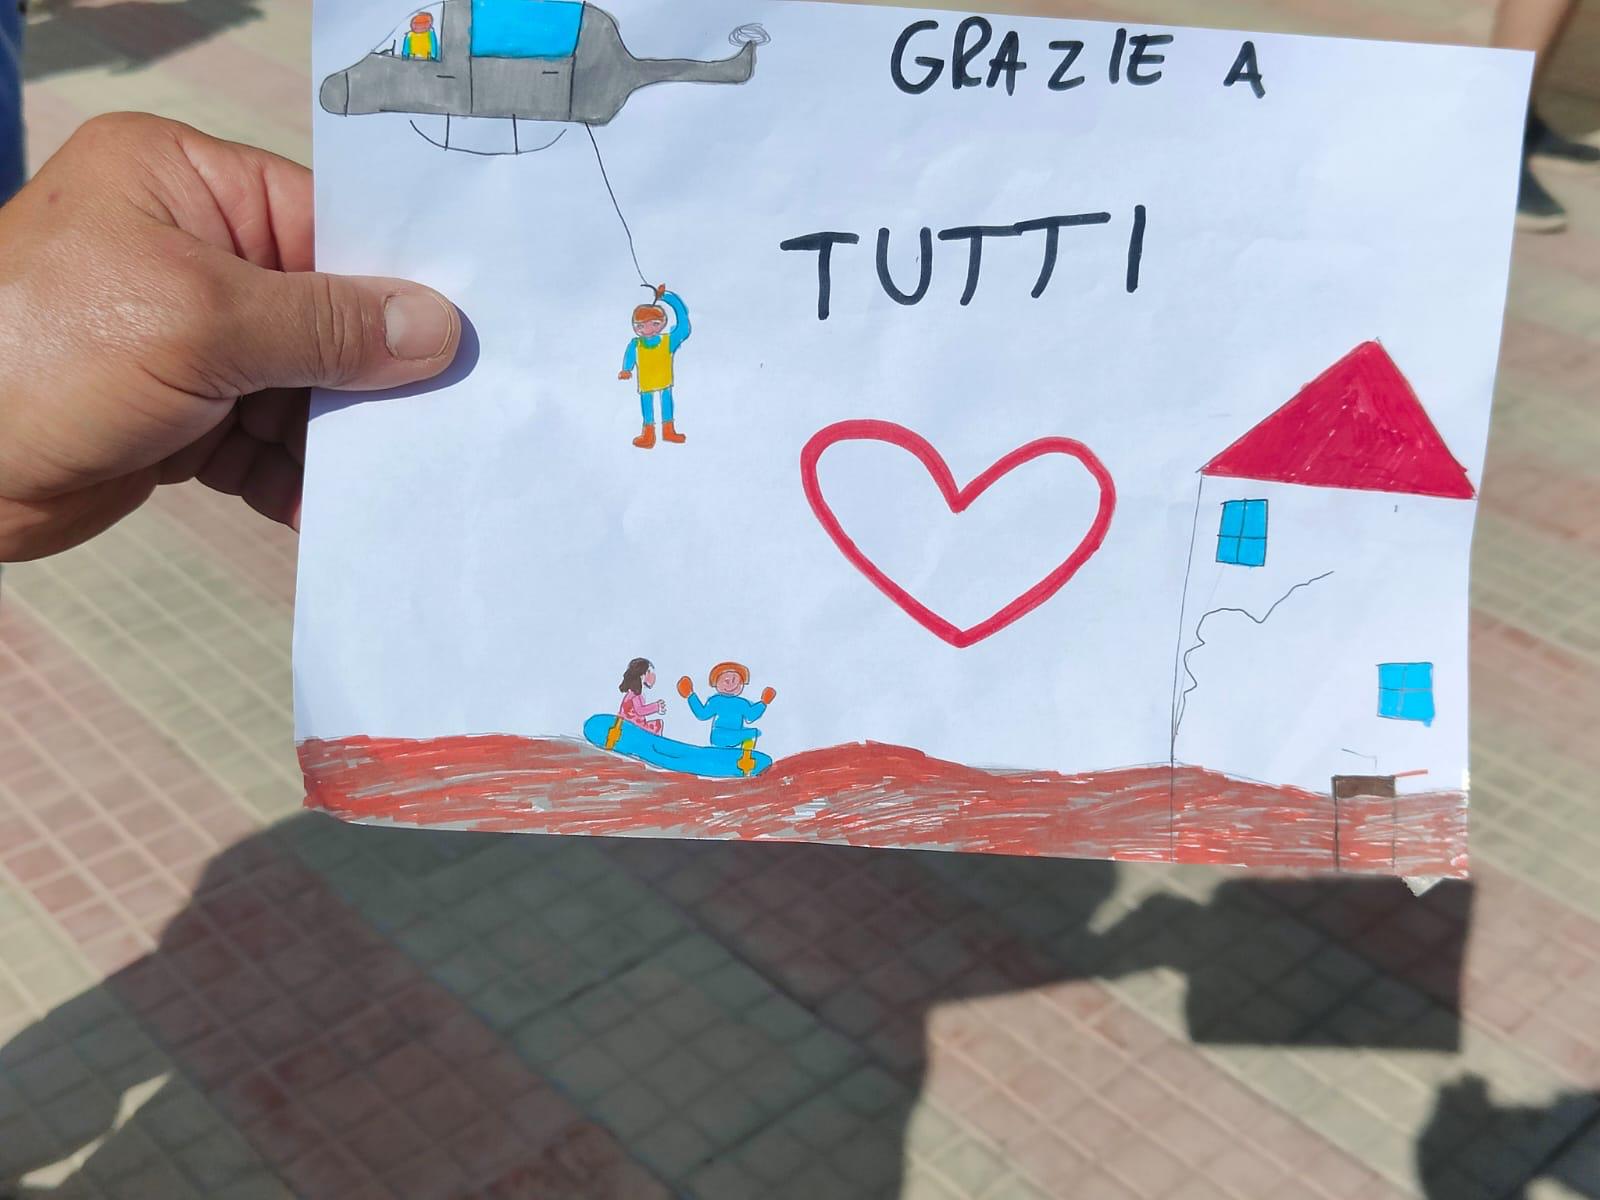 GRAZIE A
TUTTI